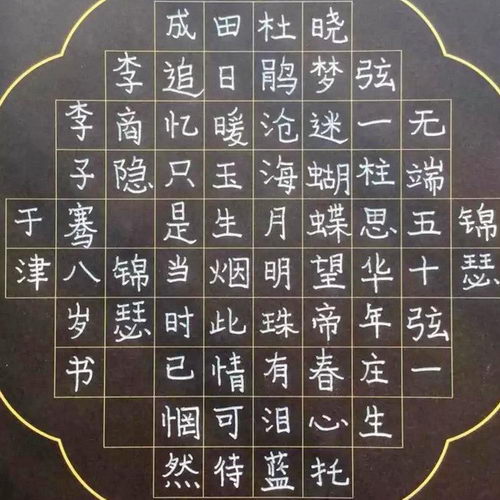 锦瑟
无端五十弦一
弦一柱思华年庄生
晓梦迷蝴蝶望帝春心托
杜鹃沧海月明珠有泪蓝
田日暖玉生烟此情可待
成追忆只是当时已惘然
李商隐 锦瑟
李子骞八岁书
于津